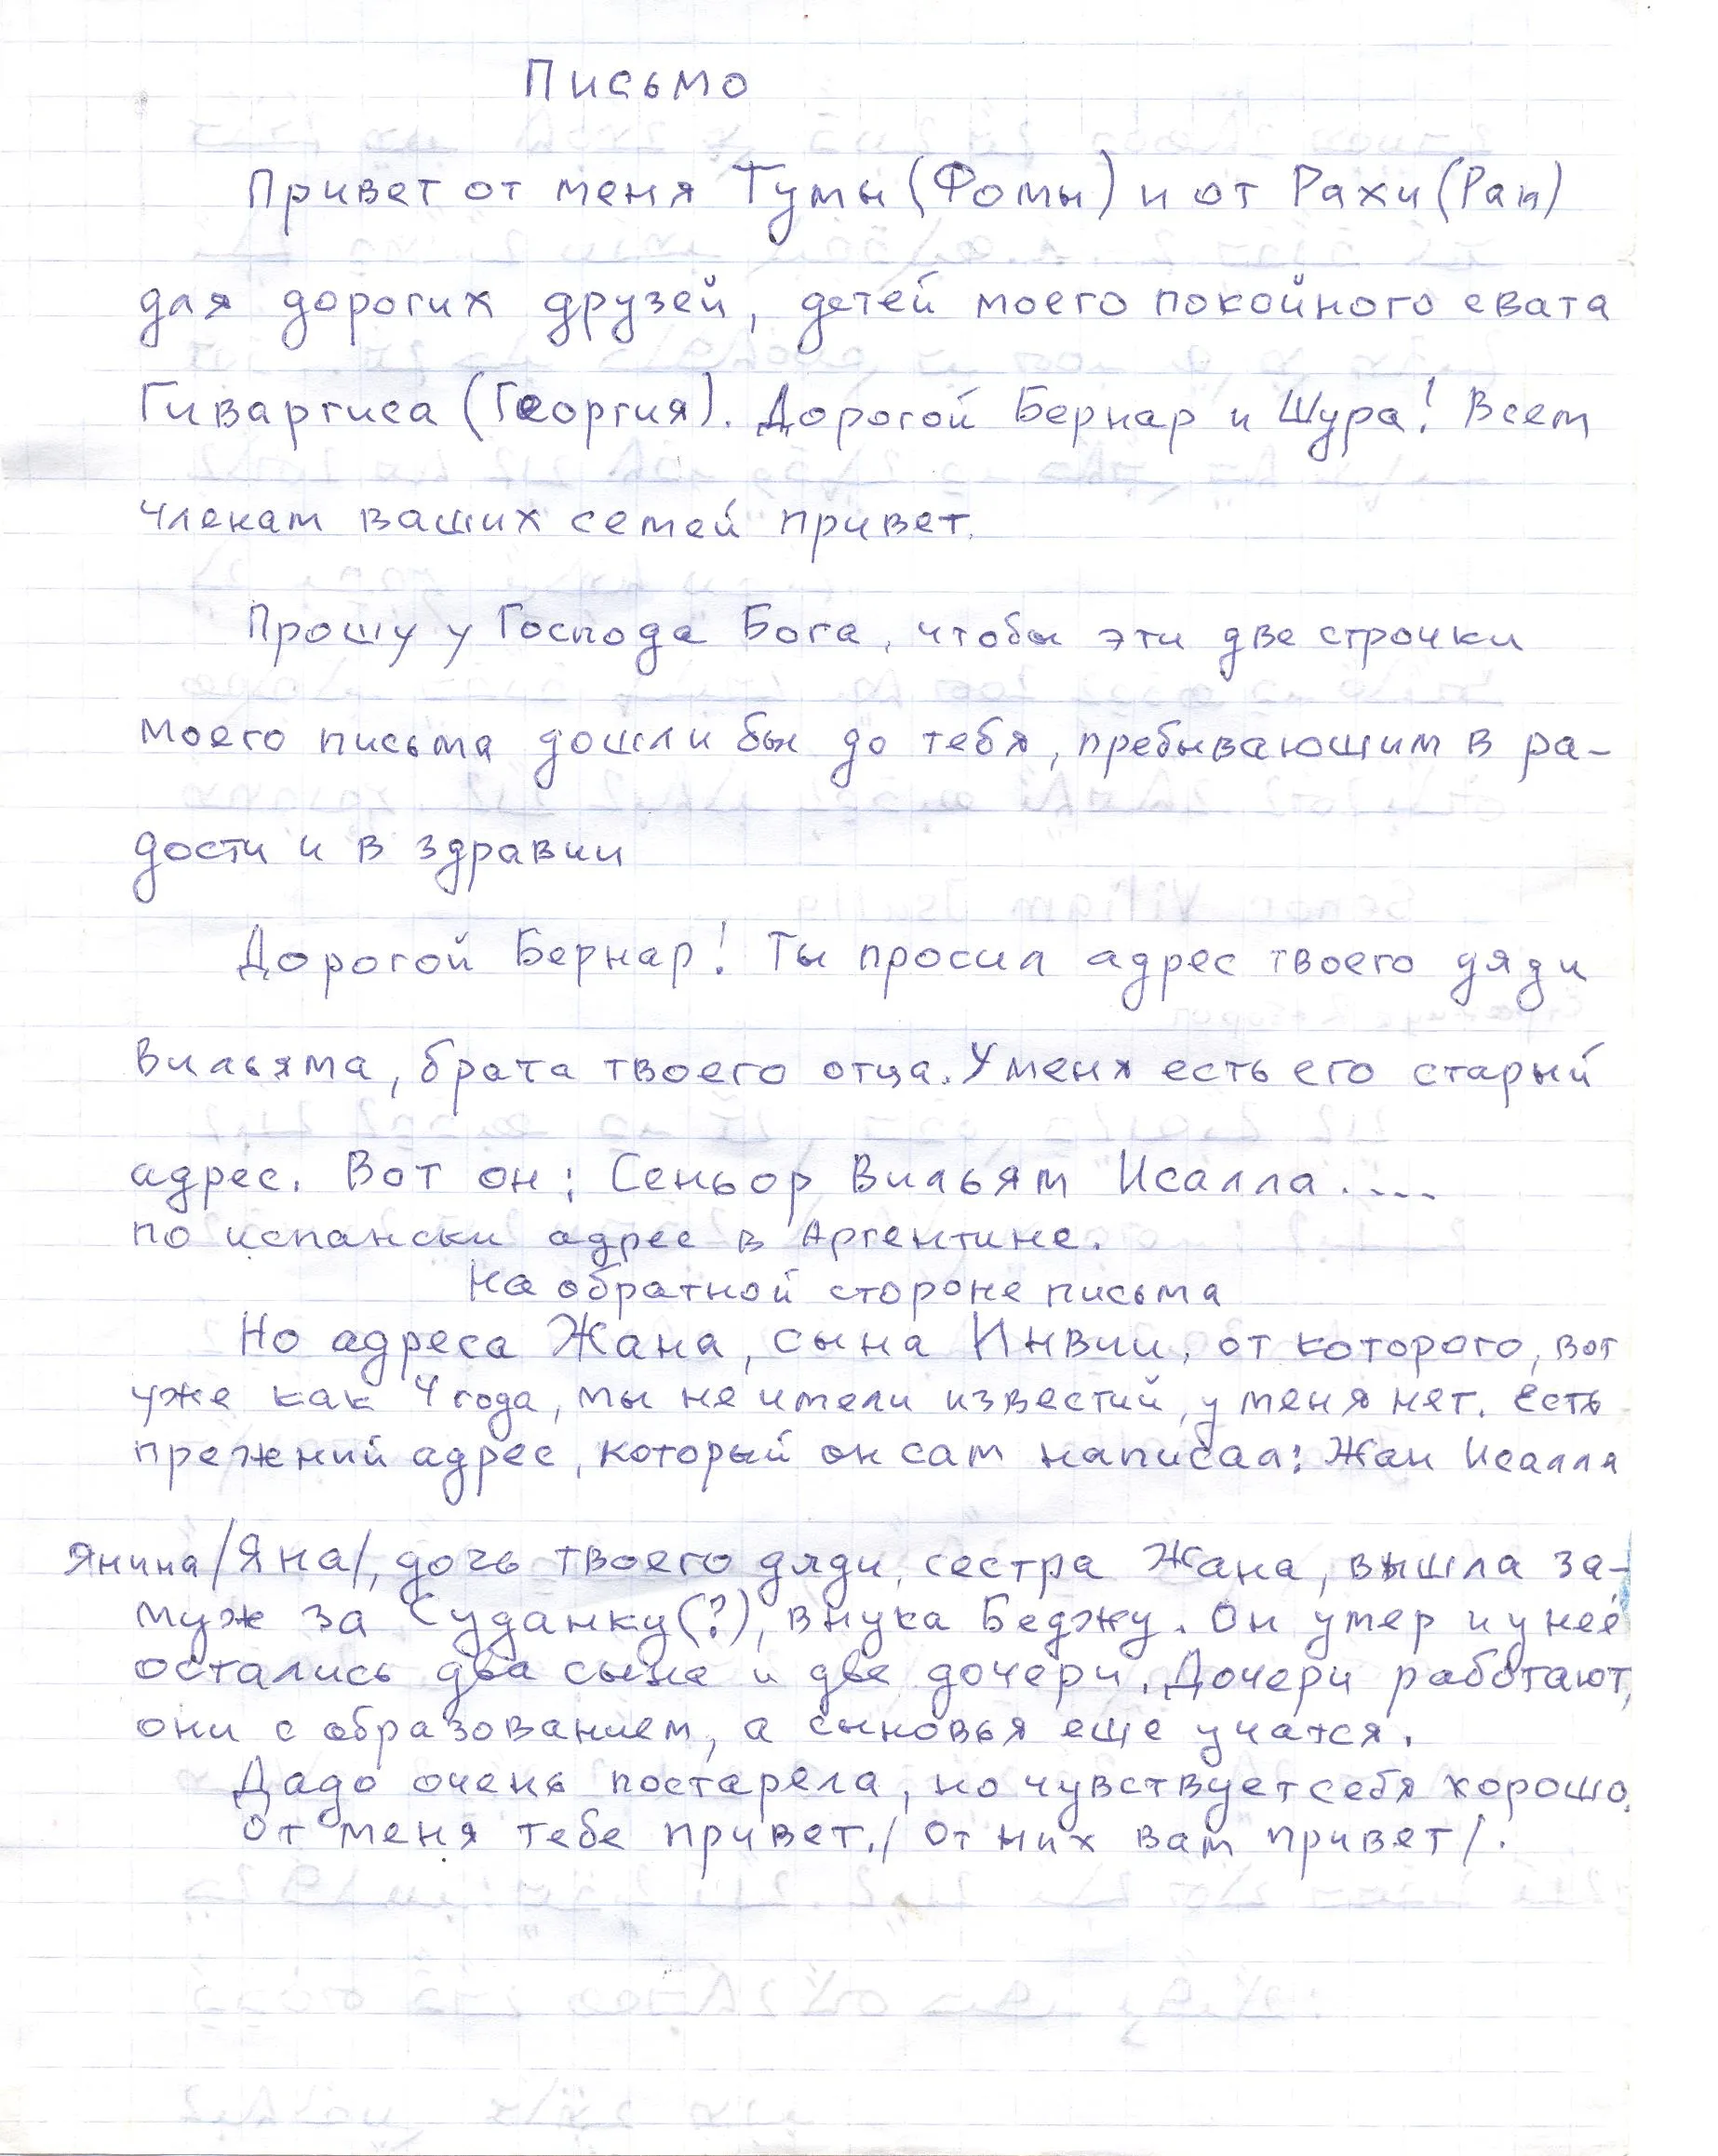 Письмо
Привет от меня Тумы (Фомы) и от Рахи (Раи)
для дорогих друзей, детей моего покойного свата
Гиваргиса (Георгия). Дорогой Бернар и Шура! Всем
членам ваших семей привет.
Прошу у Господа Бога, чтобы эти две строчки
моего письма дошли бы до тебя, пребывающим в ра-
дости и в здравии
Дорогой Бернар! Ты просил адрес твоего дяди
Вильяма, брата твоего отца. У меня есть его старый
адрес. Вот он: Сеньор Вильям Исалла.....
по испански адрес в Аргентине.
На обратной стороне письма
Но адреса Жана, сына Инвии, от которого, вот
уже как 4 года, мы не имели известий, у меня нет. Есть
прежний адрес, который он сам написал: Жан Исалля
Янина /Яна/, дочь твоего дяди, сестра Жана, вышла за-
муж за Суданку(?), внука Беджу. Он умер и у неё
остались два сына и две дочери. Дочери работают,
они с образованием, а сыновья еще учатся.
Дадо очень постарела, но чувствует себя хорошо.
От меня тебе привет. / От них вам привет /.